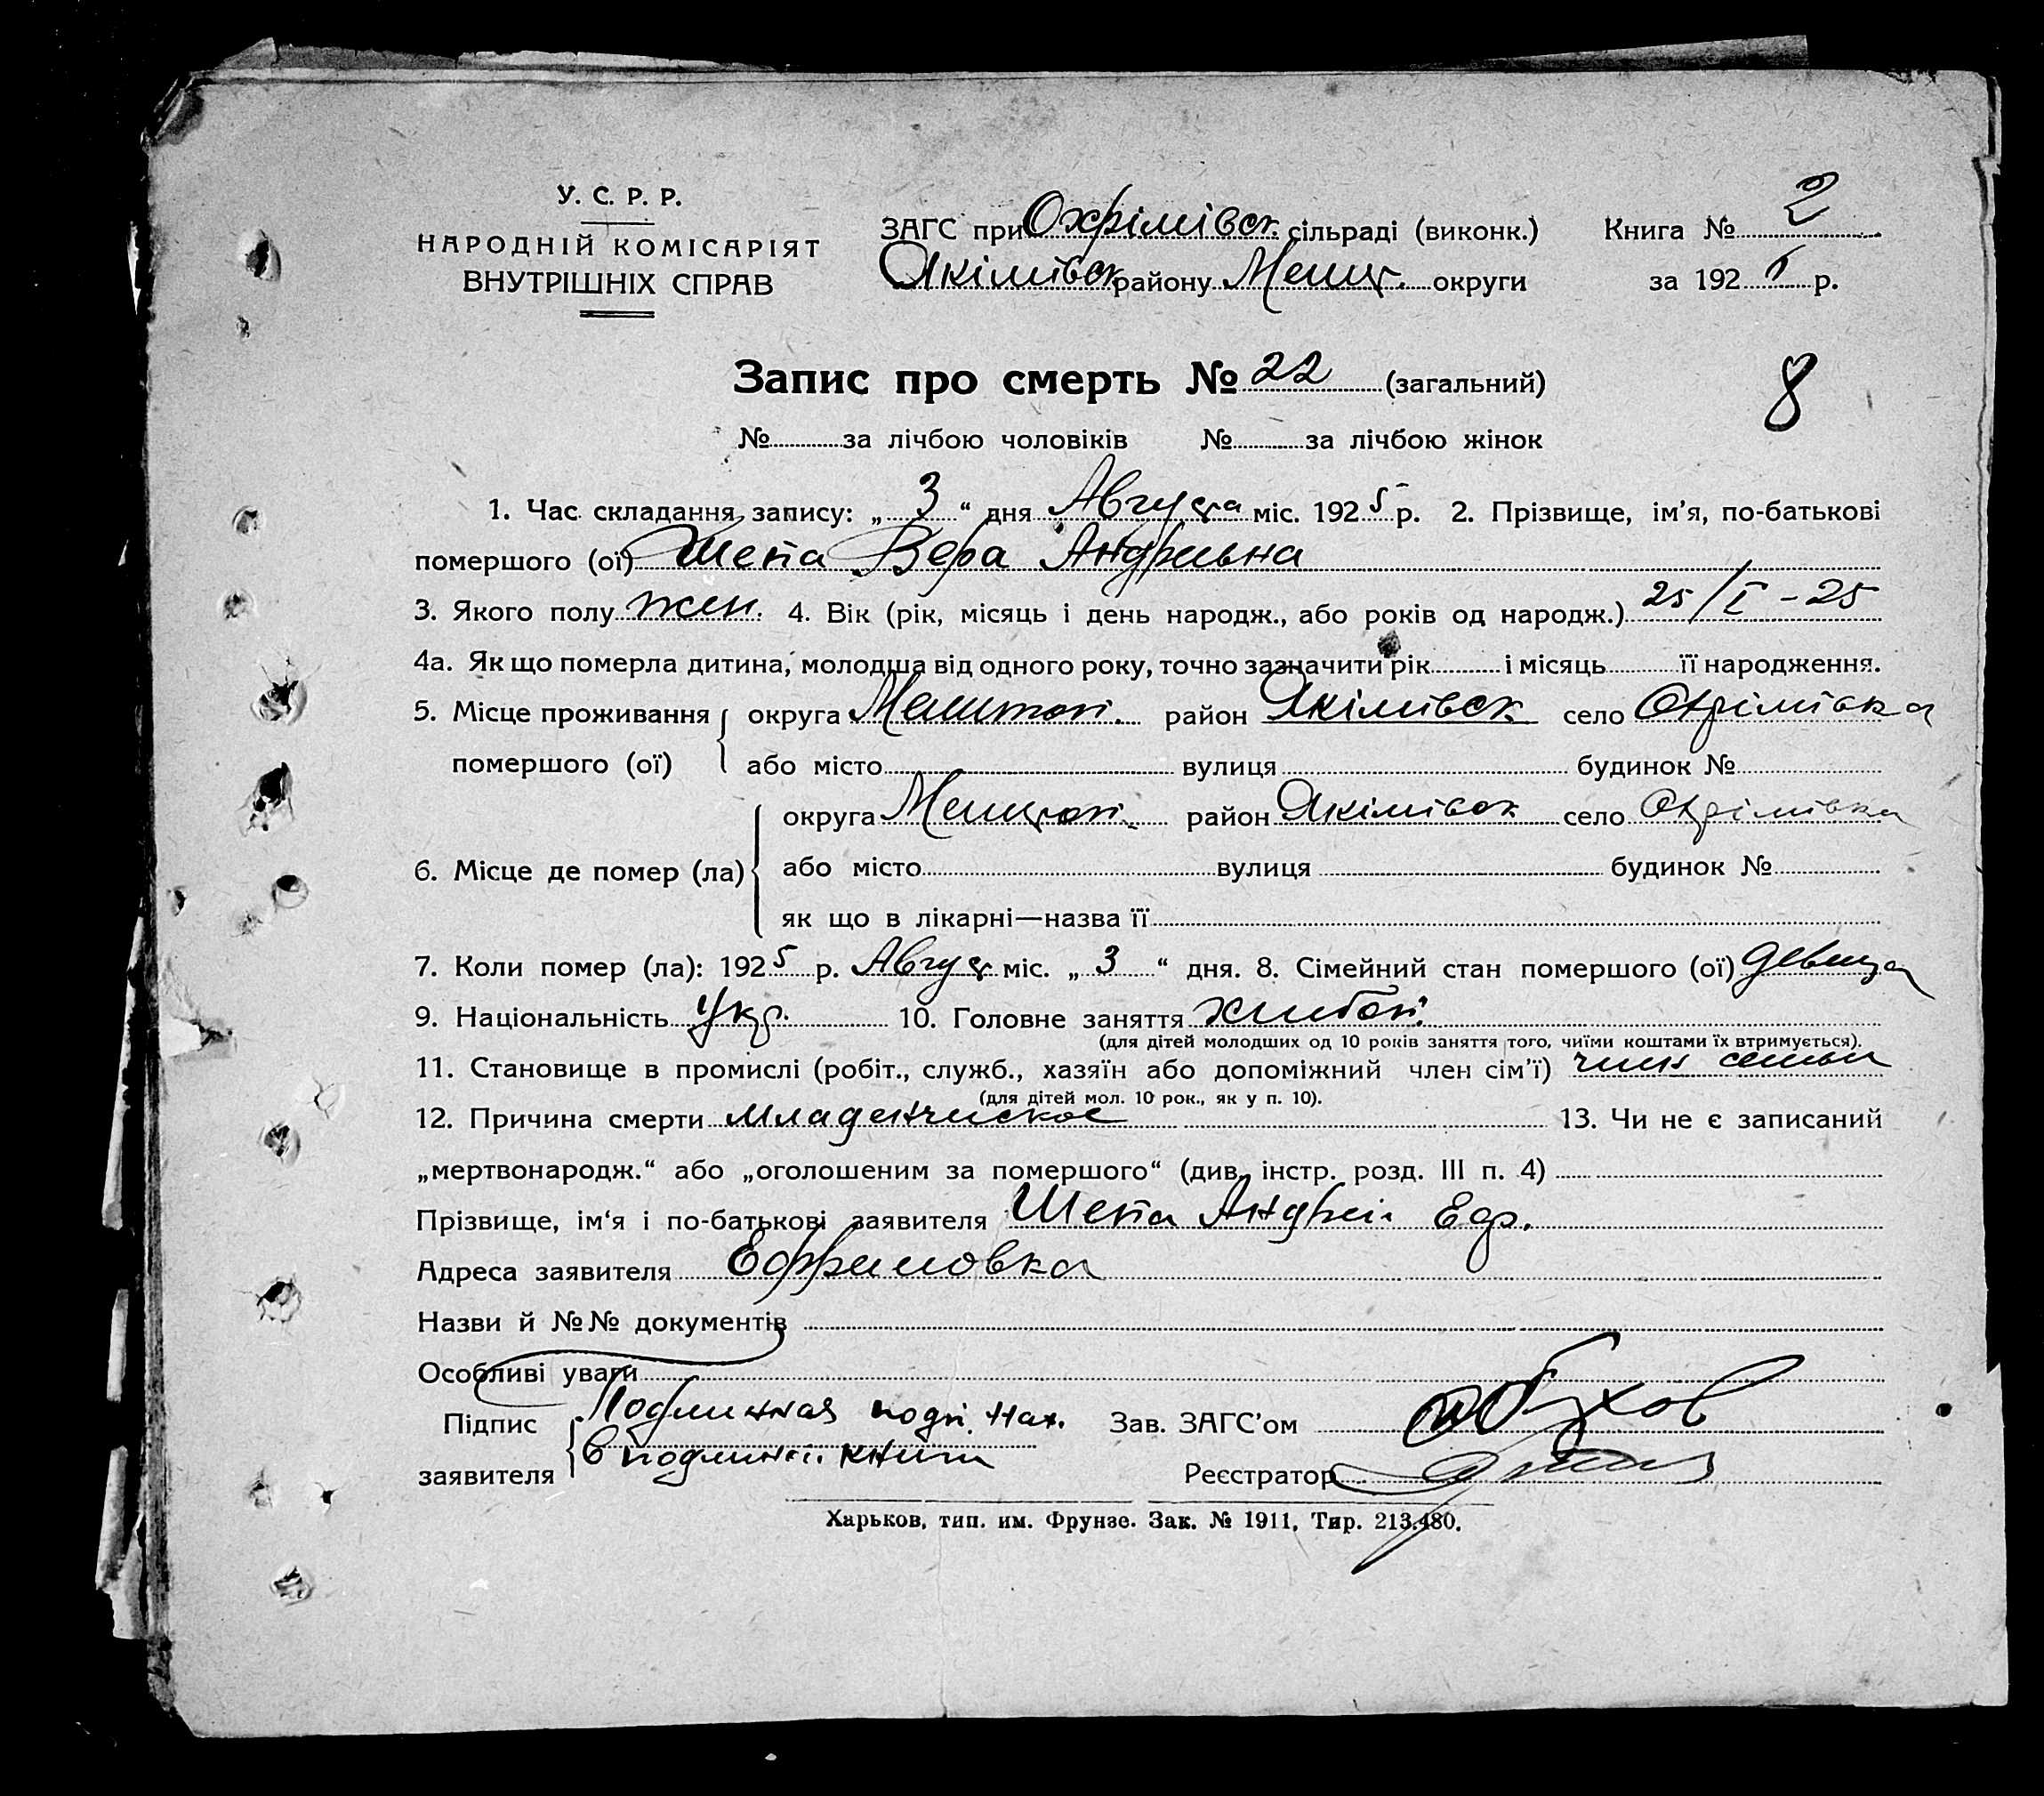 У. С. Р. Р.
НАРОДНІЙ КОМІСАРІЯТ
ВНУТРІШНІХ СПРАВ
ЗАГС при Охрімівск. сільраді (виконк.) Книга № 2
Якімівск району Мелит. округи за 192 р.
Запис про смерть № 22 (загальний)
8
№ за лічбою чоловіків № за лічбою жінок
1. Час складання запису: „ 3 “ дня Августа міс. 1925 р. 2. Прізвище, ім’я, по-батькові
помершого (ої) Шепа Вера Андревна
3. Якого полу жен. 4. Вік (рік, місяць і день народж., або років од народж.) 25/I - 25
4а. Як що померла дитина, молодша від одного року, точно зазначити рік і місяць її народження.
5. Місце проживання округа Мелитоп. район Якімівск село Охрімівка
помершого (ої) або місто вулиця будинок №
округа Мелитоп. район Якімівск село Охрімівка
6. Місце де помер (ла) або місто вулиця будинок №
як що в лікарні—назва її
7. Коли помер (ла): 1925 р. Август міс. „ 3 “ дня. 8. Сімейний стан помершого (ої) девица
9. Національність Укр. 10. Головне заняття хлебоп.
(для дітей молодших од 10 років заняття того, чиїми коштами їх втримується).
11. Становище в промислі (робіт., служб., хазяїн або допоміжний член сім’ї) член семьи
(для дітей мол. 10 рок., як у п. 10).
12. Причина смерти Младенческое 13. Чи не є записаний
„мертвонародж.“ або „оголошеним за помершого“ (див. інстр. розд. III п. 4)
Прізвище, ім‘я і по-батькові заявителя Шепа Андрей Еф.
Адреса заявителя Ефримовка
Назви й №№ документів
Особливі уваги
Підпис Подлинная подп. нах. Зав. ЗАГС’ом Обухов
заявителя в подлинн. книги Реєстратор
Харьков, тип. им. Фрунзе. Зак. № 1911, Тир. 213.480.